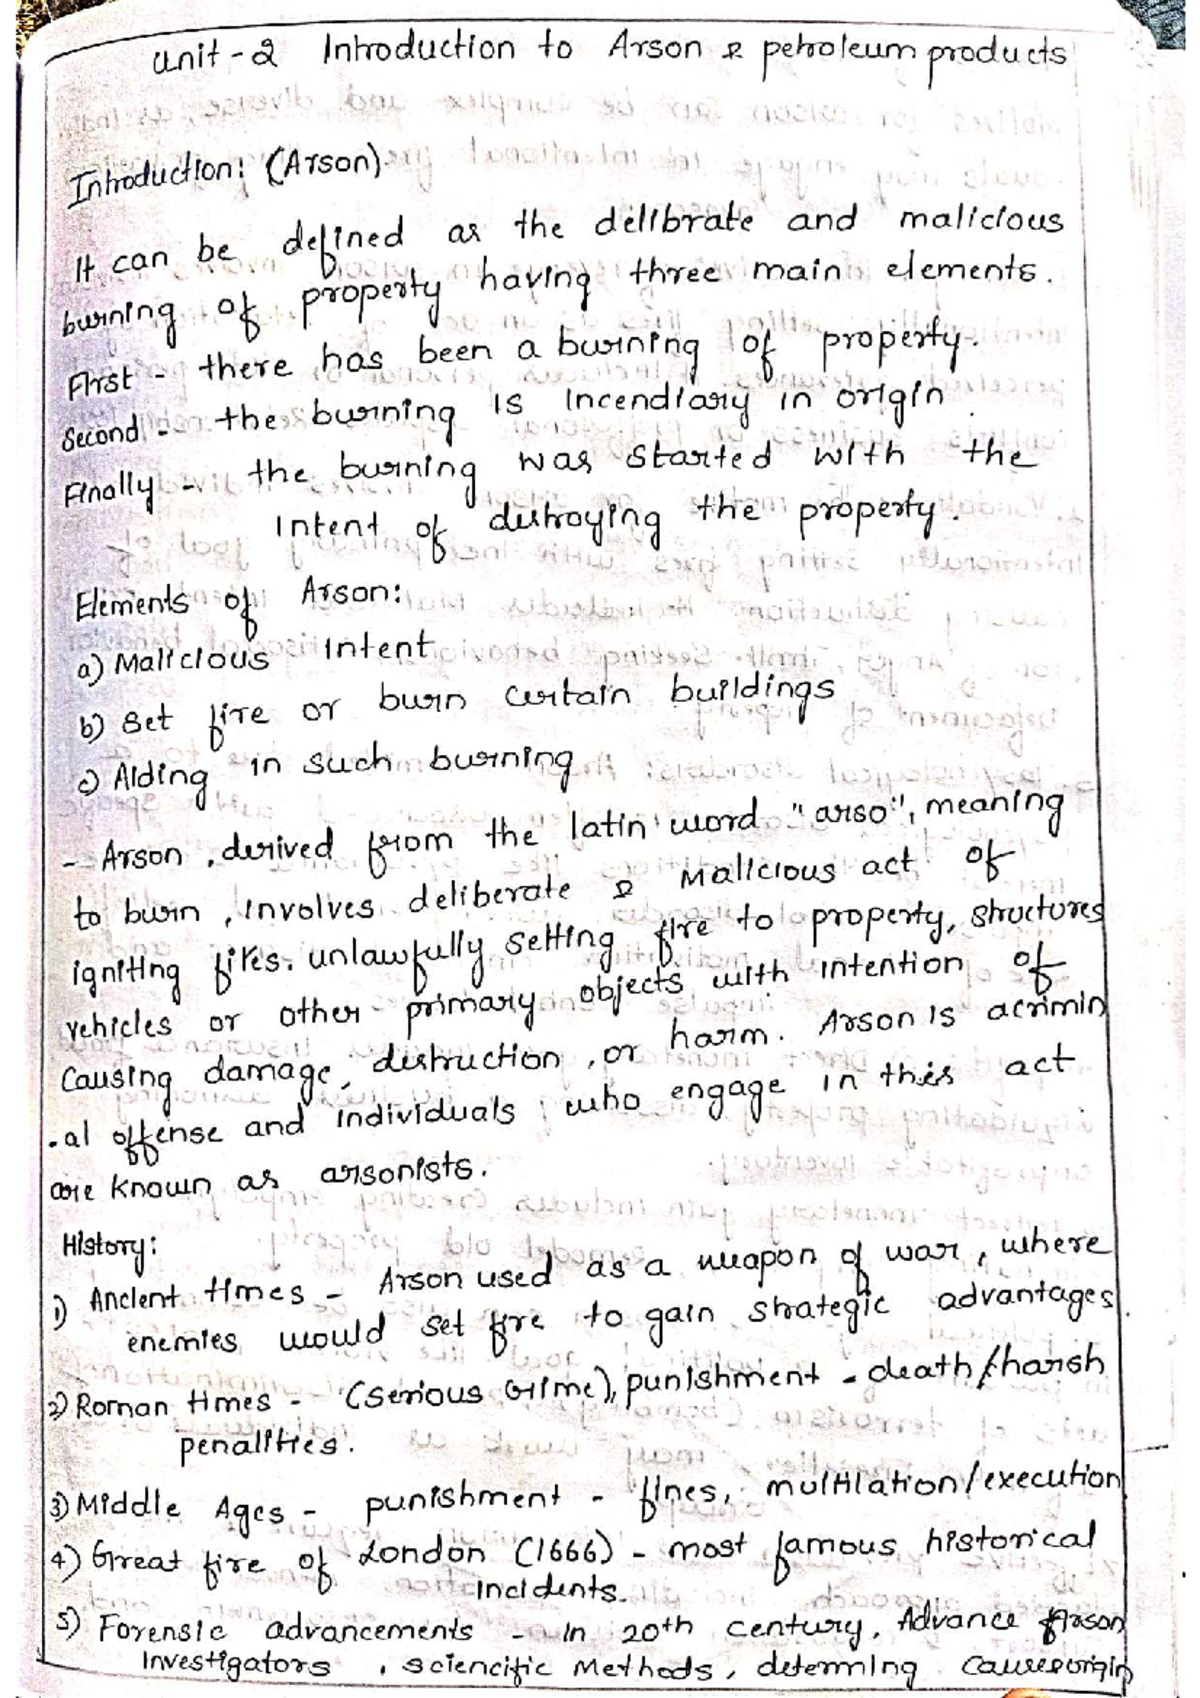 Unit-2 Introduction to Arson & petroleum products
Introduction: (Arson)
It can be defined as the delibrate and malicious
burning of property having three main elements.
First - there has been a burning of property.
Second - the burning is incendiary in origin.
Finally - the burning was started with the
intent of distroying the property.
Elements of Arson:
a) Malicious intent
b) Set fire or burn certain buildings
c) Aiding in such burning
- Arson, derived from the latin word "arso", meaning
to burn, involves deliberate & Malicious act of
igniting fires. unlawfully setting fire to property, structures
vehicles or other primary objects with intention of
causing damage, distruction, or harm. Arson is a crimin
-al offense and individuals who engage in this act
are known as arsonists.
History:
1) Ancient times - Arson used as a weapon of war, where
enemies would set fire to gain strategic advantages.
2) Roman times - (Serious Crime), punishment - death/harsh
penalities.
3) Middle Ages - punishment - fines, multilation/execution
4) Great fire of London (1666) - most famous historical
incidents.
5) Forensic advancements - In 20th century, Advance Arson
Investigators, sciencific Methods, determing cause origin